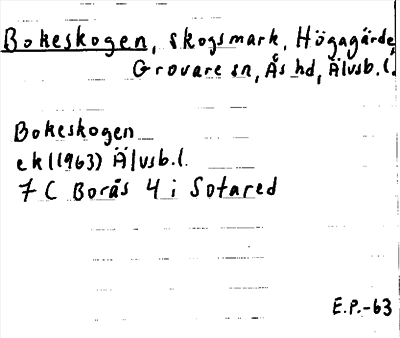 Bokeskogen, skogsmark, Högagärde,
Grovare sn, Ås hd, Älvsb.l.
Bokeskogen
ek1(1963) Älvsb.l.
7 C Borås 4 i Sotared
E.P.-63